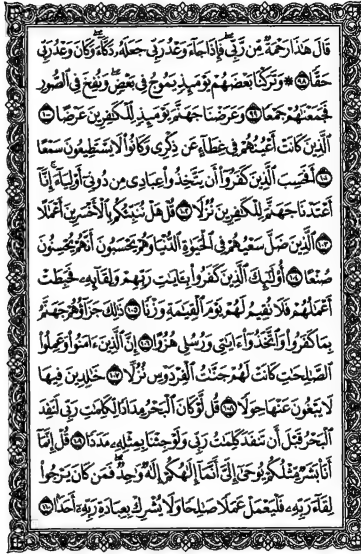 قَالَ هَٰذَا رَحْمَةٌ مِّن رَّبِّي فَإِذَا جَآءَ وَعْدُ رَبِّي جَعَلَهُۥ دَكَّآءَ وَكَانَ وَعْدُ رَبِّي
حَقًّا ٩٨ ۞ وَتَرَكْنَا بَعْضَهُمْ يَوْمَئِذٍ يَمُوجُ فِي بَعْضٍ وَنُفِخَ فِي ٱلصُّورِ
فَجَمَعْنَٰهُمْ جَمْعًا ٩٩ وَعَرَضْنَا جَهَنَّمَ يَوْمَئِذٍ لِّلْكَٰفِرِينَ عَرْضًا ١٠٠
ٱلَّذِينَ كَانَتْ أَعْيُنُهُمْ فِي غِطَآءٍ عَن ذِكْرِي وَكَانُوا۟ لَا يَسْتَطِيعُونَ سَمْعًا
١٠١ أَفَحَسِبَ ٱلَّذِينَ كَفَرُوٓا۟ أَن يَتَّخِذُوا۟ عِبَادِي مِن دُونِيٓ أَوْلِيَآءَ إِنَّآ
أَعْتَدْنَا جَهَنَّمَ لِلْكَٰفِرِينَ نُزُلًا ١٠٢ قُلْ هَلْ نُنَبِّئُكُم بِٱلْأَخْسَرِينَ أَعْمَٰلًا
١٠٣ ٱلَّذِينَ ضَلَّ سَعْيُهُمْ فِي ٱلْحَيَوٰةِ ٱلدُّنْيَا وَهُمْ يَحْسَبُونَ أَنَّهُمْ يُحْسِنُونَ
صُنْعًا ١٠٤ أُو۟لَٰٓئِكَ ٱلَّذِينَ كَفَرُوا۟ بِـَٔايَٰتِ رَبِّهِمْ وَلِقَآئِهِۦ فَحَبِطَتْ
أَعْمَٰلُهُمْ فَلَا نُقِيمُ لَهُمْ يَوْمَ ٱلْقِيَٰمَةِ وَزْنًا ١٠٥ ذَٰلِكَ جَزَآؤُهُمْ جَهَنَّمُ
بِمَا كَفَرُوا۟ وَٱتَّخَذُوٓا۟ ءَايَٰتِي وَرُسُلِي هُزُوًا ١٠٦ إِنَّ ٱلَّذِينَ ءَامَنُوا۟ وَعَمِلُوا۟
ٱلصَّٰلِحَٰتِ كَانَتْ لَهُمْ جَنَّٰتُ ٱلْفِرْدَوْسِ نُزُلًا ١٠٧ خَٰلِدِينَ فِيهَا
لَا يَبْغُونَ عَنْهَا حِوَلًا ١٠٨ قُل لَّوْ كَانَ ٱلْبَحْرُ مِدَادًا لِّكَلِمَٰتِ رَبِّي لَنَفِدَ
ٱلْبَحْرُ قَبْلَ أَن تَنفَدَ كَلِمَٰتُ رَبِّي وَلَوْ جِئْنَا بِمِثْلِهِۦ مَدَدًا ١٠٩ قُلْ إِنَّمَآ
أَنَا۠ بَشَرٌ مِّثْلُكُمْ يُوحَىٰٓ إِلَيَّ أَنَّمَآ إِلَٰهُكُمْ إِلَٰهٌ وَٰحِدٌ فَمَن كَانَ يَرْجُوا۟
لِقَآءَ رَبِّهِۦ فَلْيَعْمَلْ عَمَلًا صَٰلِحًا وَلَا يُشْرِكْ بِعِبَادَةِ رَبِّهِۦٓ أَحَدًۢا ١١٠